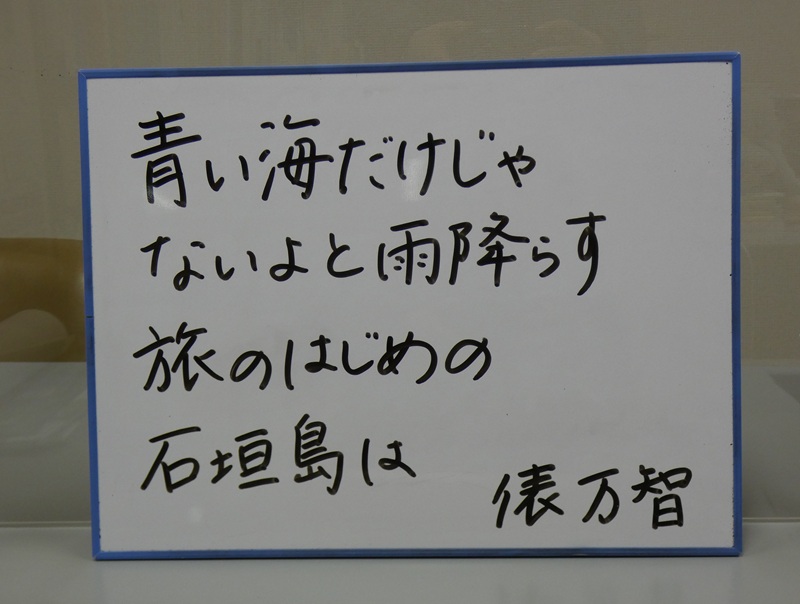 青い海だけじゃ
ないよと雨降らす
旅のはじめの
石垣島は
俵万智